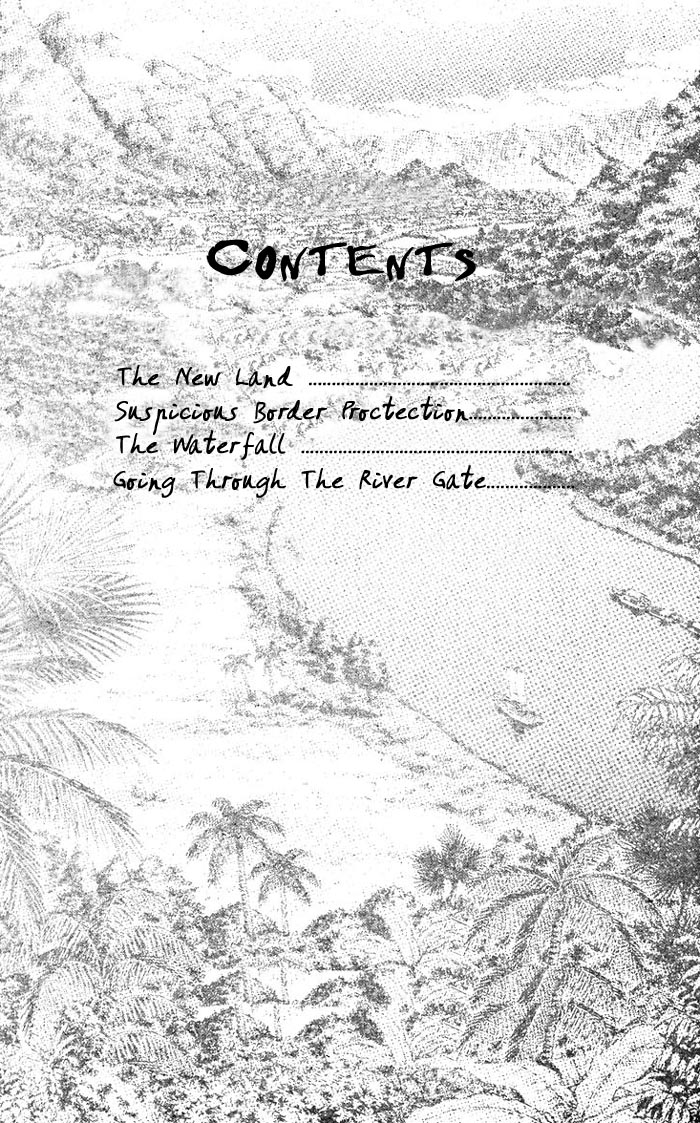 CONTENTS
The New Land ................................................................
Suspicious Border Proctection.........................
The Waterfall ..................................................................
Going Through The River Gate.....................